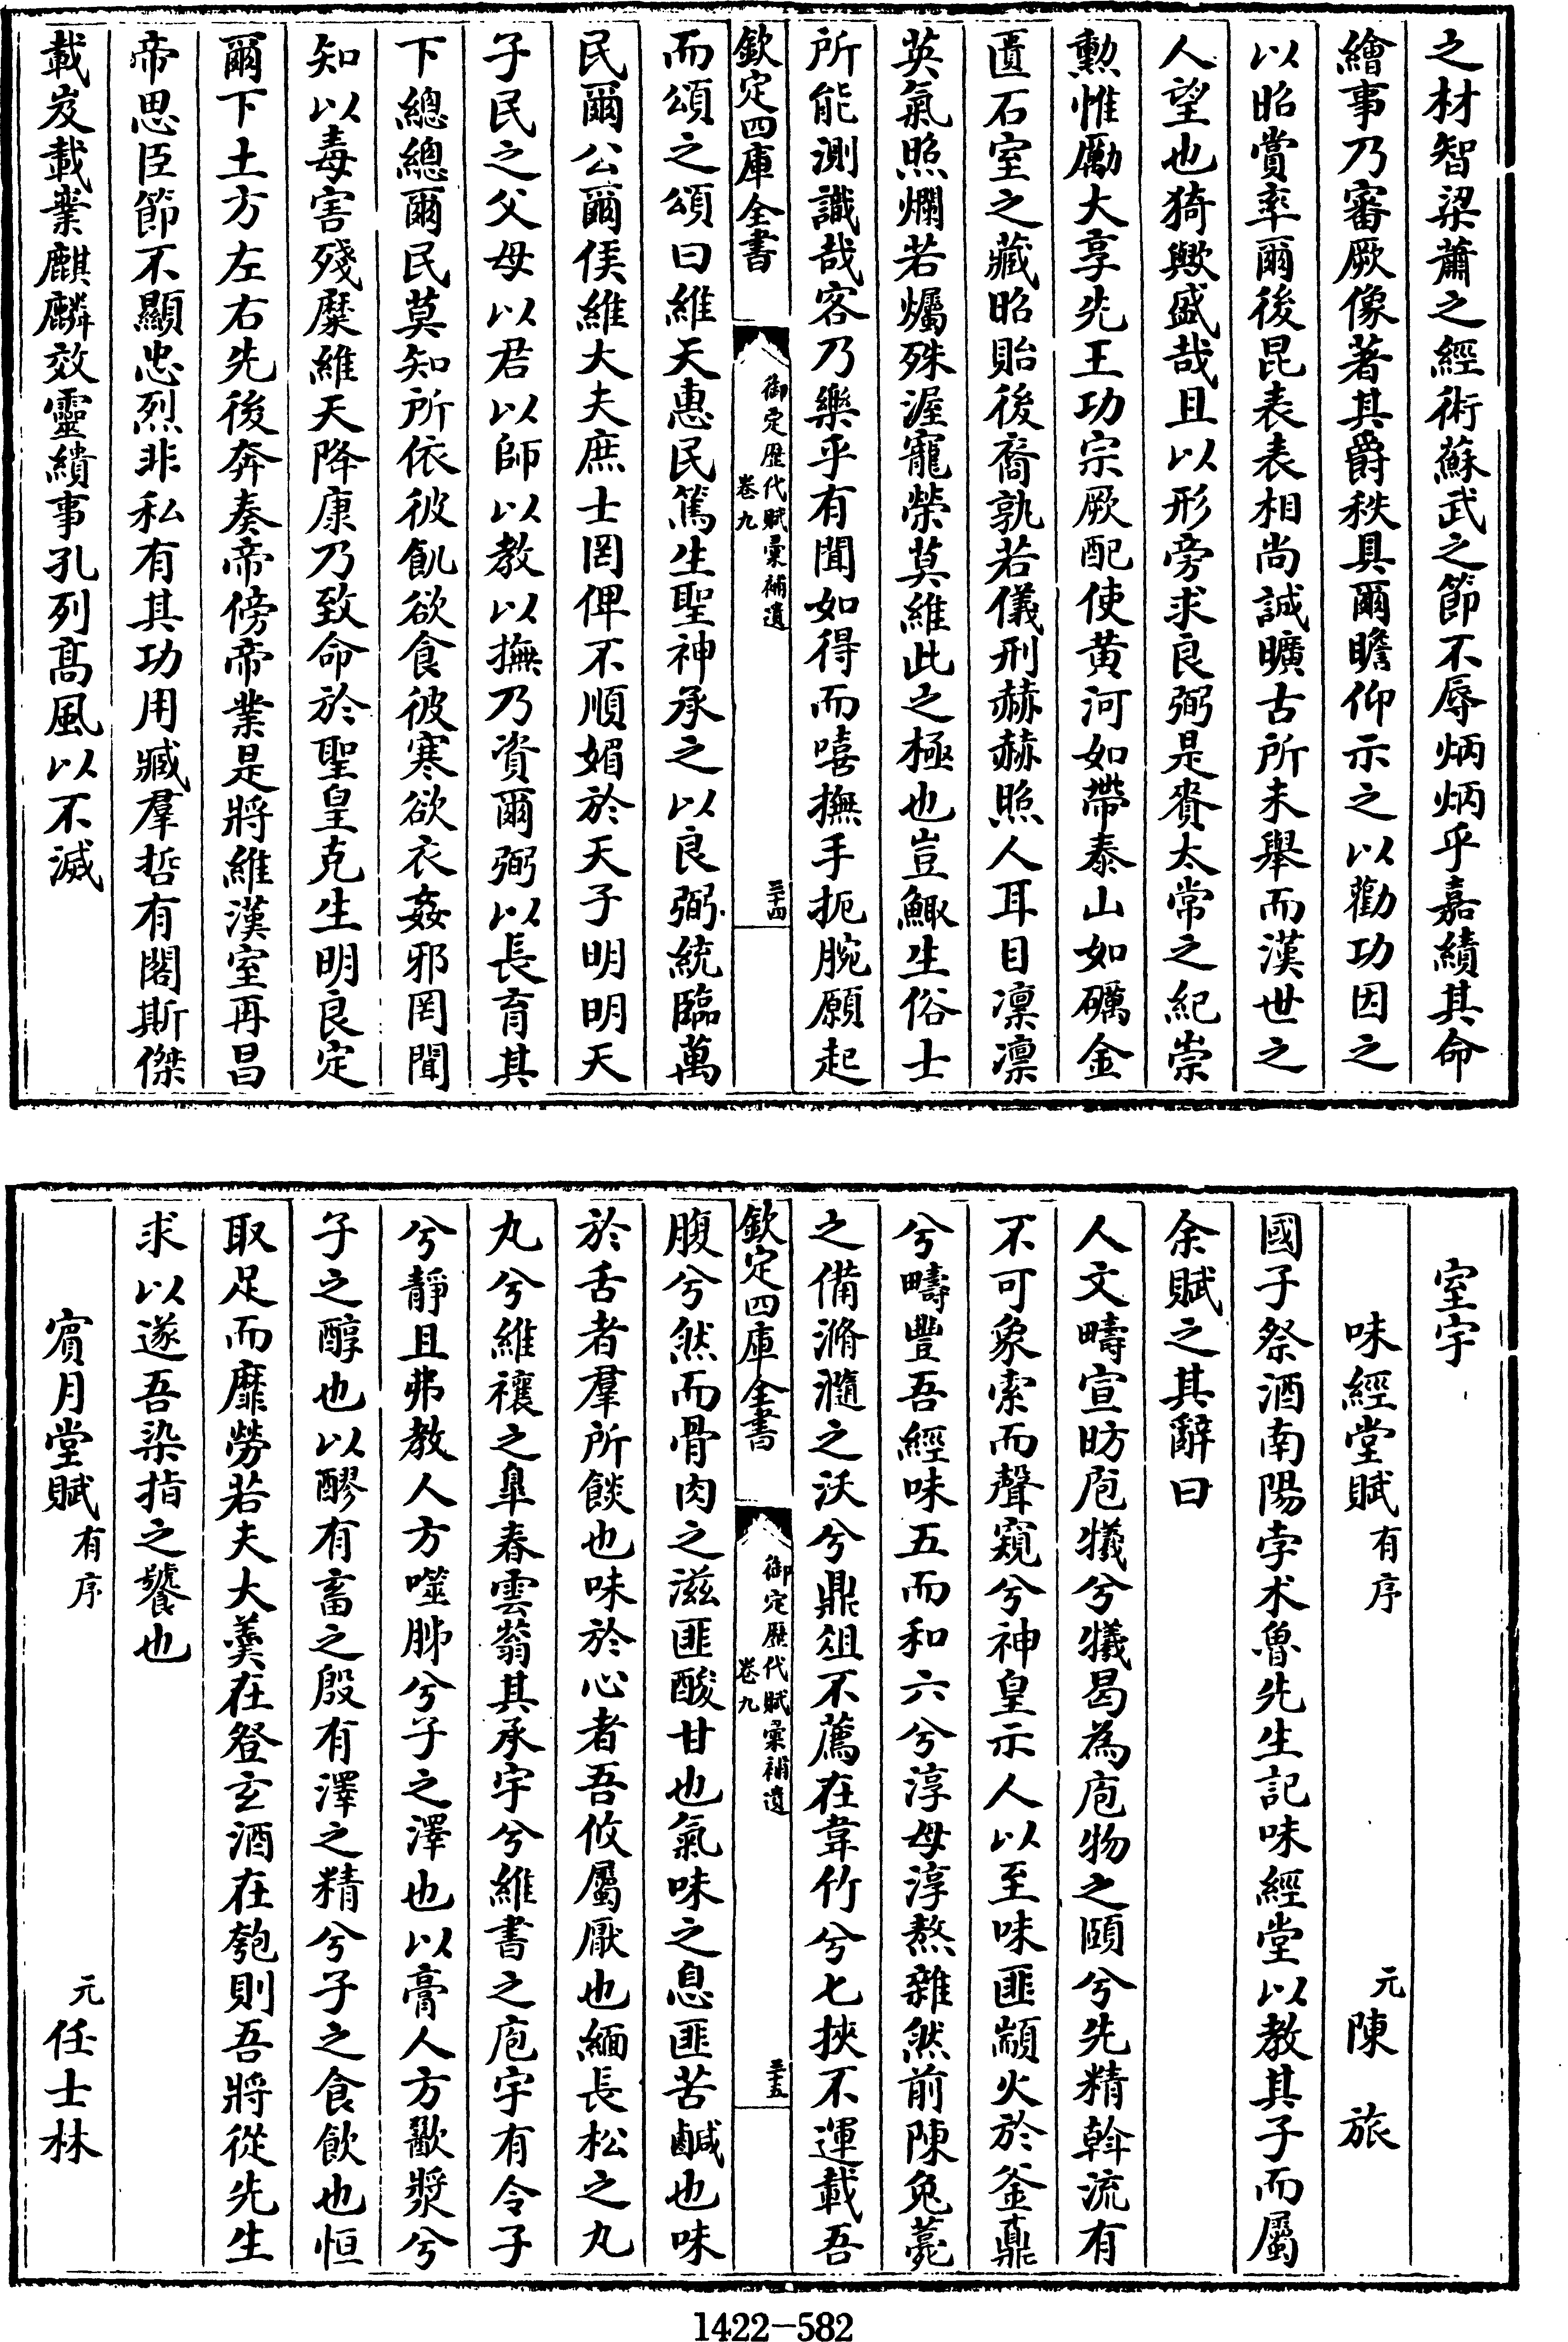 之材智梁蕭之經術蘇武之節不辱炳炳乎嘉績其命
繪事乃審厥像著其爵秩具爾瞻仰示之以勸功因之
以昭賞率爾後昆表表相尚誠曠古所未舉而漢世之
人望也猗歟盛哉且以形旁求良弼是賚太常之紀崇
勲惟勵大享先王功宗厥配使黄河如帶泰山如礪金
匱石室之藏昭貽後裔孰若儀刑赫赫照人耳目凛凛
英氣照爛若爥殊渥寵榮莫維此之極也豈鯫生俗士
所能測識哉客乃樂乎有聞如得而嘻撫手扼腕願起
欽定四庫全書
御定歴代賦彚補遺
卷九
三十四
而頌之頌曰維天惠民篤生聖神承之以良弼統臨萬
民爾公爾侯維大夫庶士罔俾不順媚於天子明明天
子民之父母以君以師以教以撫乃資爾弼以長育其
下總總爾民莫知所依彼飢欲食彼寒欲衣姦邪罔聞
知以毒害殘糜維天降康乃致命於聖皇克生明良定
爾下土方左右先後奔奏帝傍帝業是將維漢室再昌
帝思臣節不顯忠烈非私有其功用臧羣哲有閣斯傑
載岌載業麒麟效靈繢事孔列髙風以不滅
室宇
味經堂賦有序
元陳旅
國子祭酒南陽孛术魯先生記味經堂以教其子而屬
余賦之其辭曰
人文疇宣昉庖犧兮犧曷為庖物之頤兮先精斡流有
不可象索而聲窺兮神皇示人以至味匪顓火於釡鼎
兮疇豐吾經味五而和六兮淳母淳熬雜然前陳兔薧
之備滫瀡之沃兮鼎俎不薦在韋竹兮匕挾不運載吾
欽定四庫全書
御定歴代賦彚補遺
卷九
三十五
腹兮然而骨肉之滋匪酸甘也氣味之息匪苦鹹也味
於舌者羣所餤也味於心者吾攸屬厭也緬長松之丸
丸兮維穰之臯春雲蓊其承宇兮維書之庖宇有令子
兮靜且弗教人方噬胏兮子之澤也以膏人方歠漿兮
子之醇也以醪有畜之殷有澤之精兮子之食飲也恒
取足而靡勞若夫大羹在豋玄酒在匏則吾將從先生
求以遂吾染指之饕也
賔月堂賦有序
元任士林
1422-582